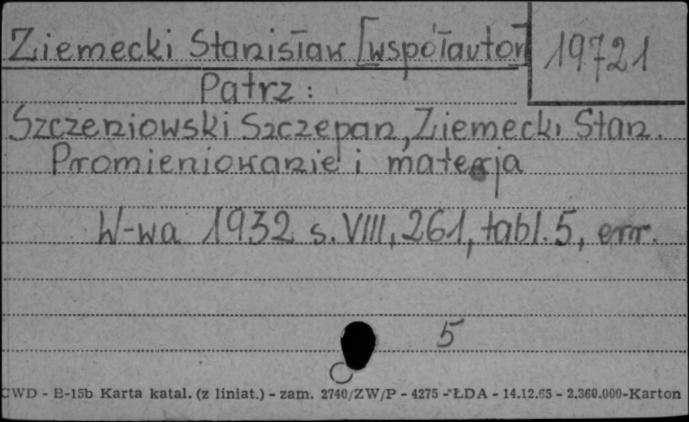 Ziemecki Stanisław [współautor
19721
Patrz:
Szczeniowski Szczepan, Ziemecki Stan.
Promieniowanie i materja
W-wa 1932 s. VIII, 261, tabl. 5, err.
5
CWD - B-15b Karta katal. (z liniat.) - zam. 2740/ZW/P - 4275 - ŁDA - 14.12.65 - 2.360.000-Karton